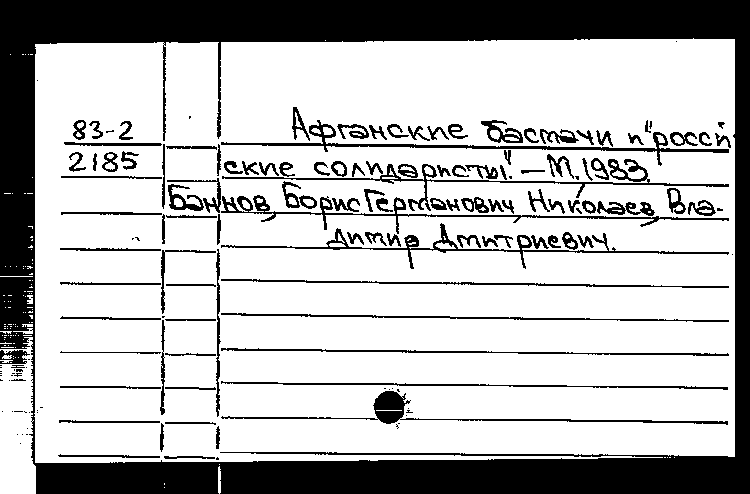 83-2 Афганские басмачи и "россий
2185 ские солидаристы". – М., 1983.
Баннов, Борис Германович, Николаев, Вла-
димир Дмитриевич.